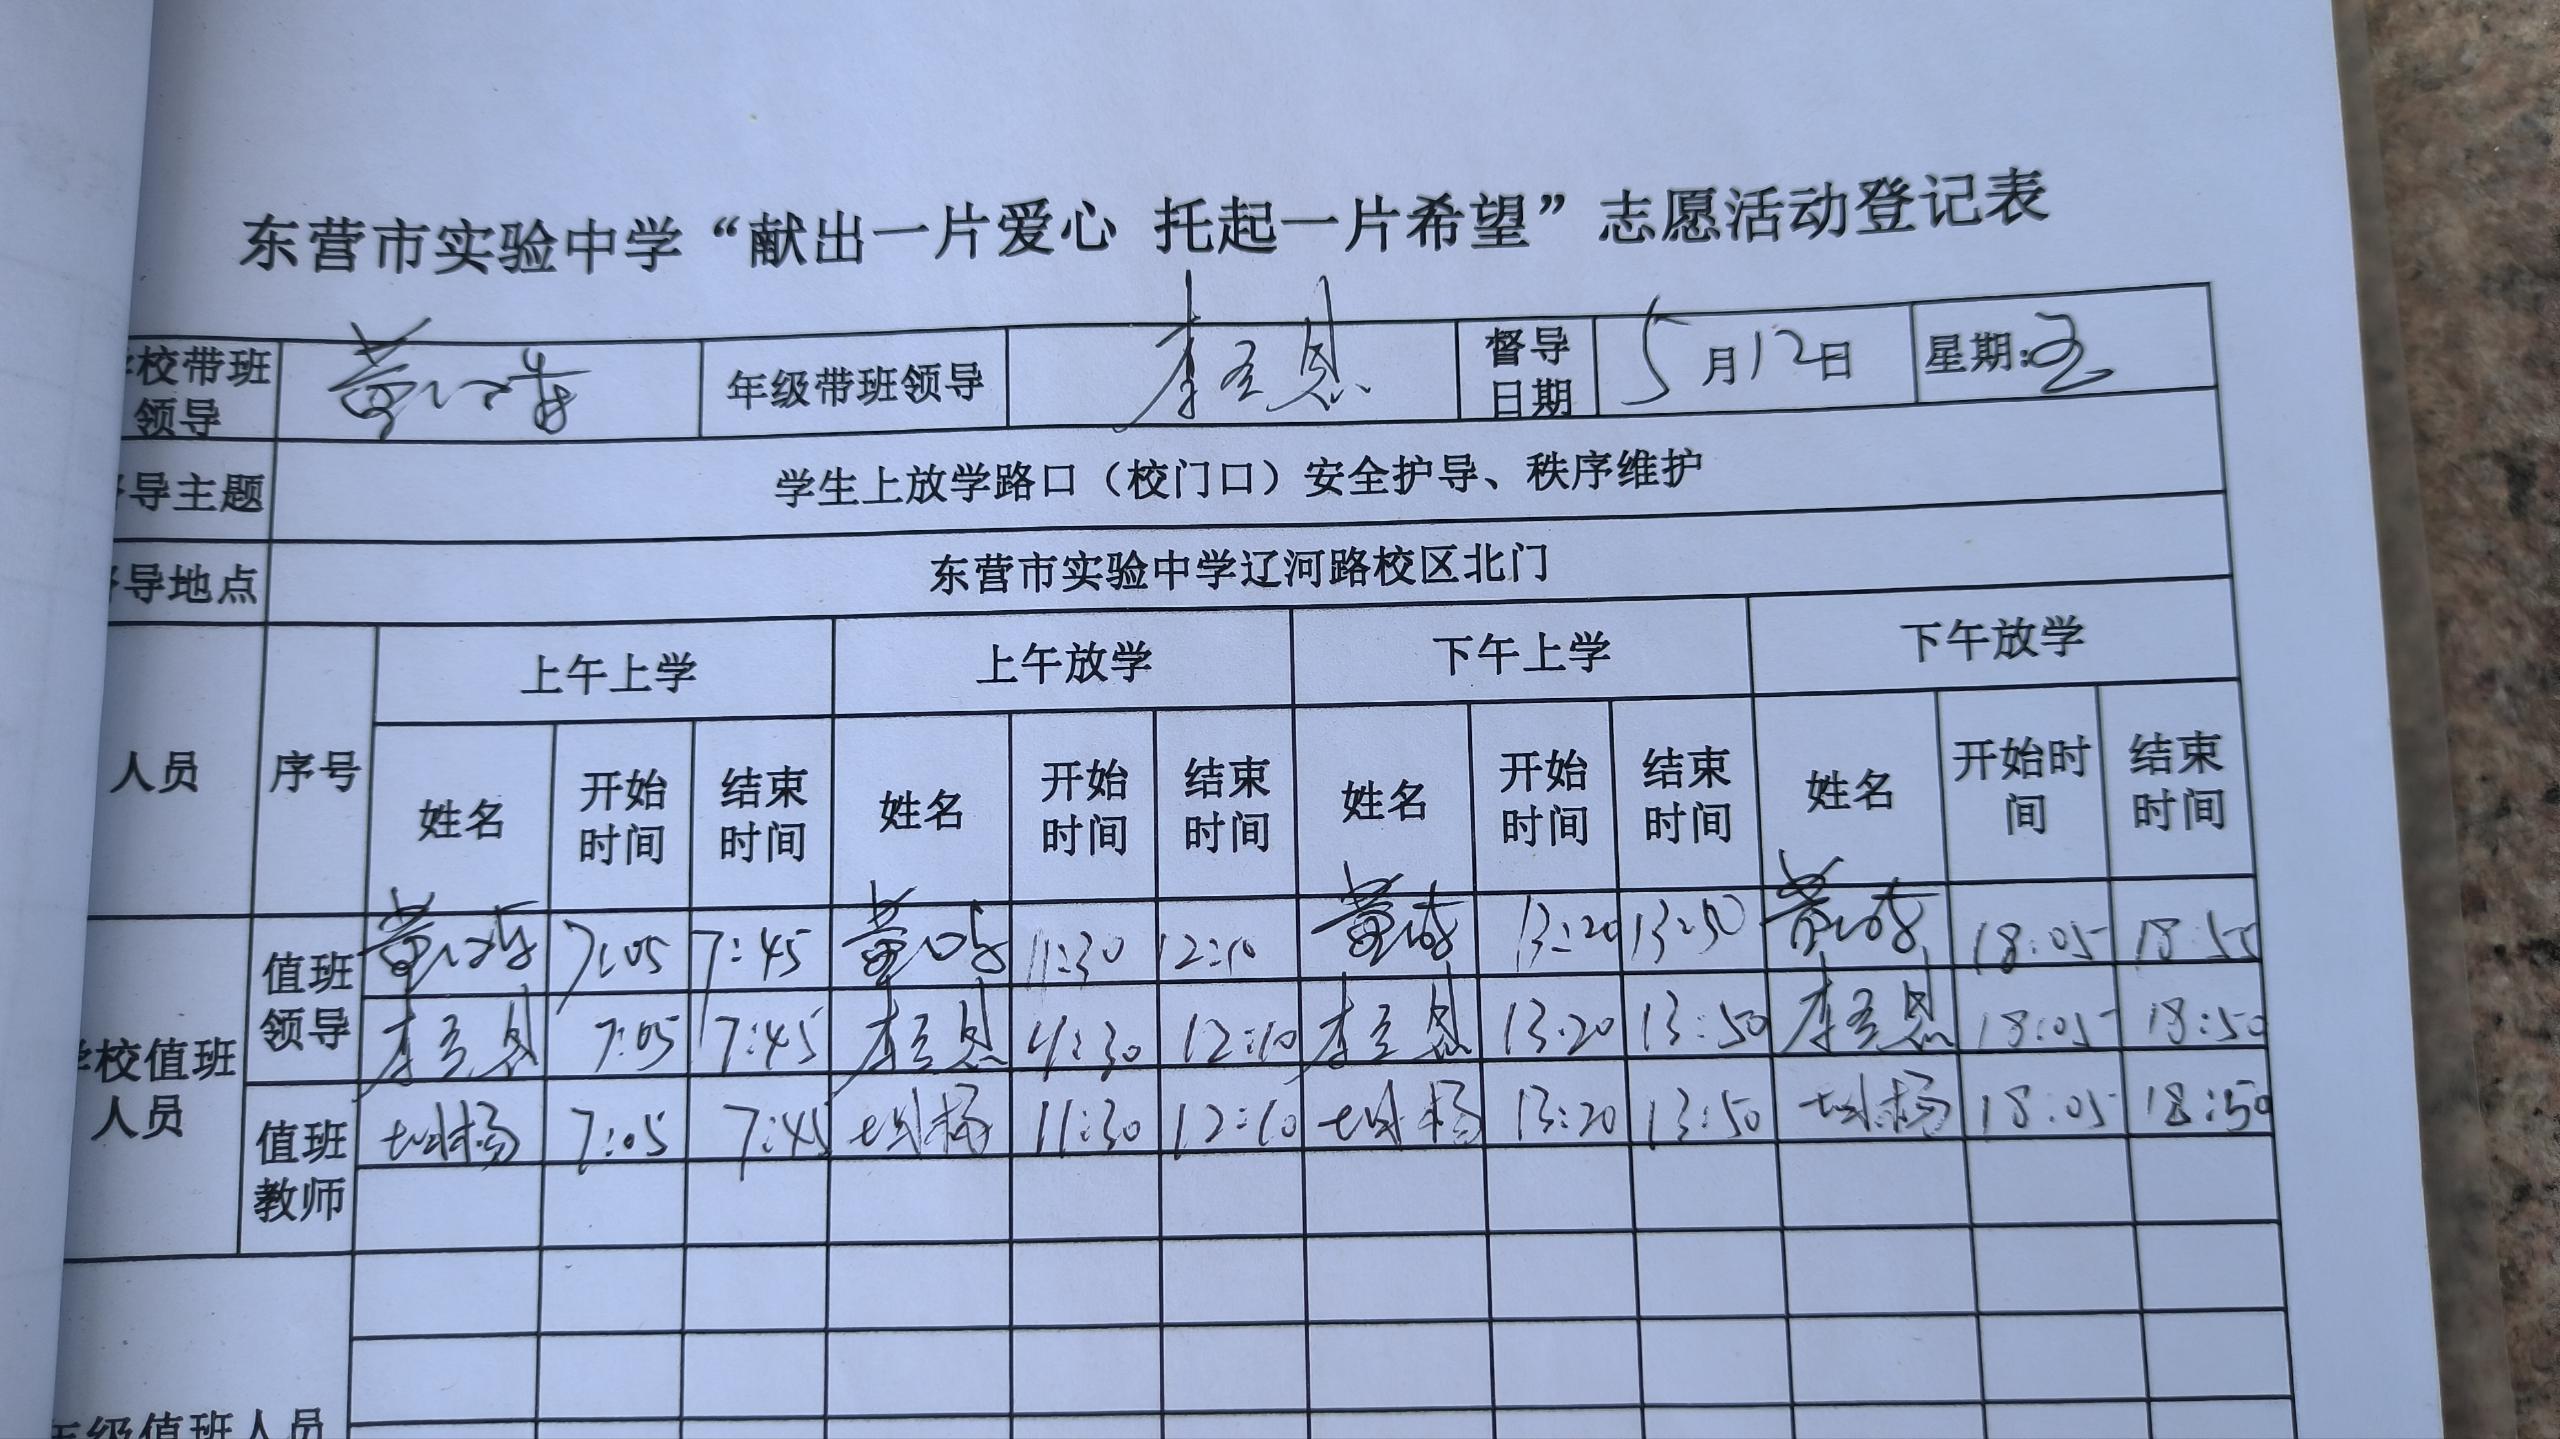 东营市实验中学“献出一片爱心 托起一片希望”志愿活动登记表
校带班领导 年级带班领导 李 恩 督导日期 5月12日 星期:五
导主题 学生上放学路口（校门口）安全护导、秩序维护
导地点 东营市实验中学辽河路校区北门
人员 序号 上午上学 上午放学 下午上学 下午放学
姓名 开始时间 结束时间 姓名 开始时间 结束时间 姓名 开始时间 结束时间 姓名 开始时间 结束时间
校值班人员 值班领导 7:05 7:45 11:30 12:10 13:20 13:50 18:05 18:55
李 恩 7:05 7:45 李 恩 11:30 12:10 李 恩 13:20 13:50 李 恩 18:05 18:50
值班教师 杨 7:05 7:45 杨 11:30 12:10 杨 13:20 13:50 杨 18:05 18:50
级值班人员